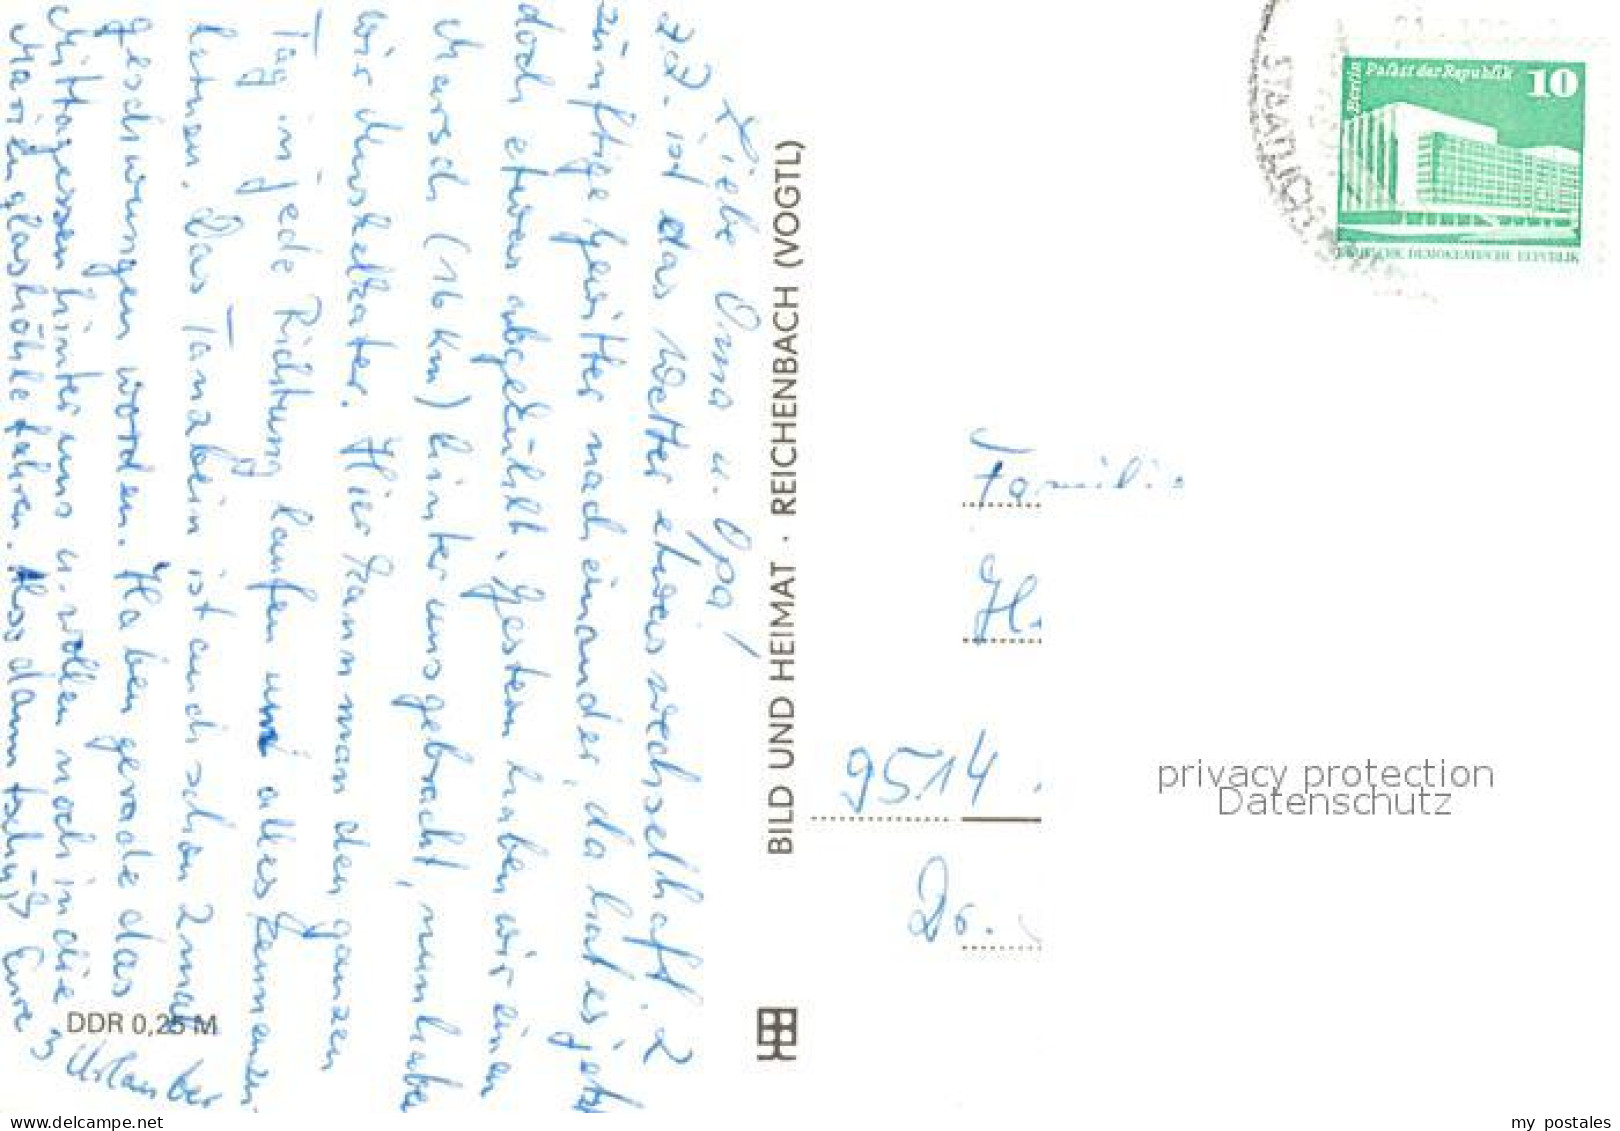 Liebe Oma u. Opa!
Z.Z. ist das Wetter etwas wechselhaft. 2
zünftige Gewitter nacheinander, da hat es jetzt
doch etwas abgekühlt. Gestern haben wir einen
Marsch (16 km) hinter uns gebracht, nun haben
wir Muskelkater. Hier kann man den ganzen
Tag in jede Richtung laufen und alles kennenzu
lernen. Das Tanzbein ist auch schon 2mal
geschwungen worden. Haben gerade das
Mittagessen hinter uns u. wollen noch in die
Marienglashöhle fahren. Also dann tschüß Eure 3
Urlauber
DDR 0,25 M
BILD UND HEIMAT · REICHENBACH (VOGTL)
Berlin
Palast der Republik
10
STAATLICH
Familie
H
9514
privacy protection
Datenschutz
www.delcampe.net
my_postales